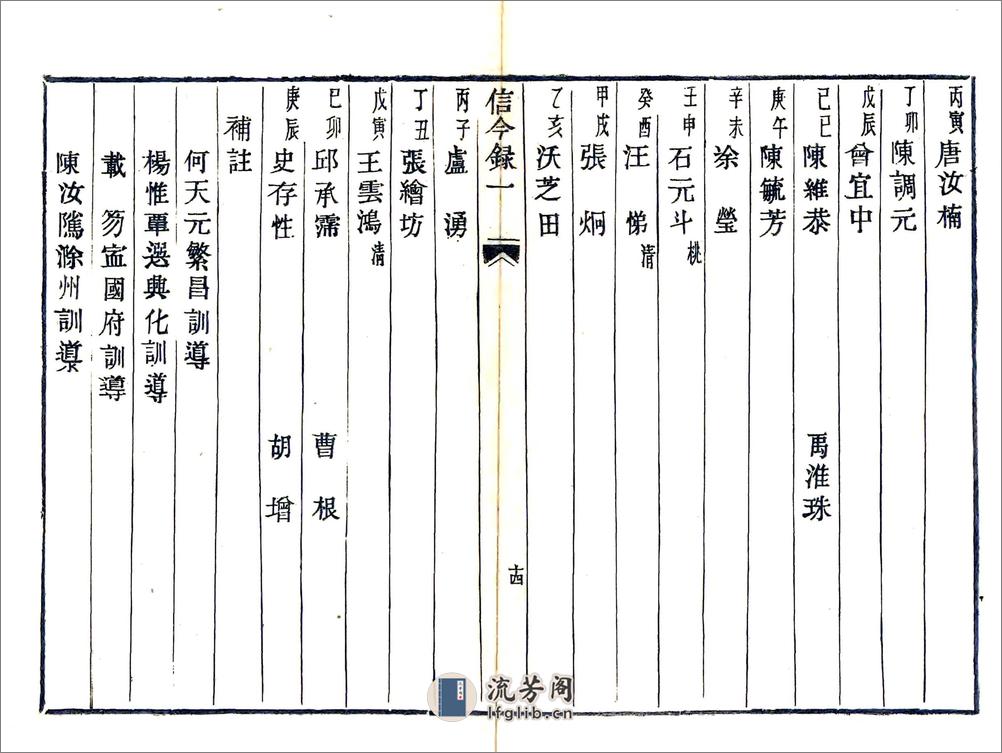 丙寅 唐汝楠
丁卯 陳調元
戊辰 曾宜中
己巳 陳維恭 禹淮珠
庚午 陳毓芳
辛未 涂瑩
壬申 石元斗 桃
癸酉 汪悌 清
甲戌 張炯
乙亥 沃芝田
信今録一 十四
丙子 盧湧
丁丑 張繪坊
戊寅 王雲鴻 清
己卯 邱承霈 曹根
庚辰 史存性 胡增
補註
何天元繁昌訓導
楊惟覃選典化訓導
載芴寍國府訓導
陳汝隲滁州訓導
流芳阁
lfglib.cn